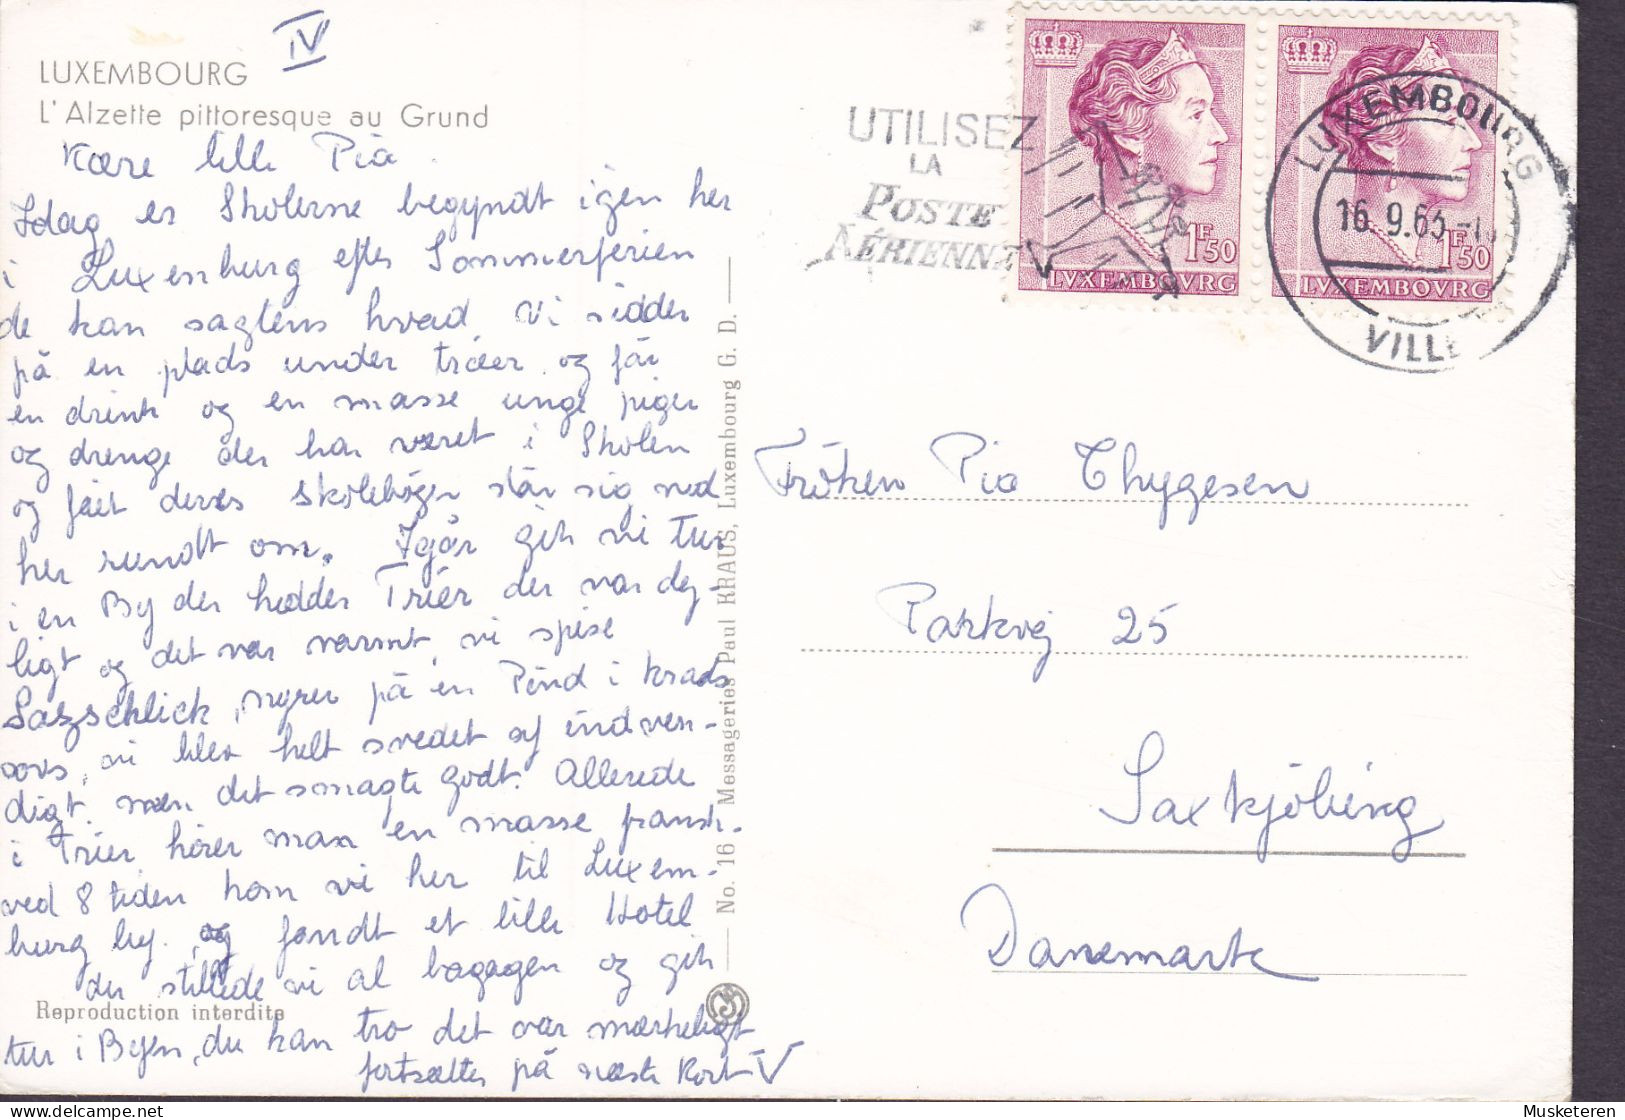 IV
LUXEMBOURG
L'Alzette pittoresque au Grund
Kære lille Pia.
Idag er Skolerne begyndt igen her
i Luxenburg efter Sommerferien
de kan sagtens hvad, vi sidder
på en plads under træer og får
en drink og en masse unge piger
og drenge der har været i Skolen
og fået deres skolebøger slår sig ned
her rundt om. Igår gik vi tur
i en By der hedder Trier der var dej-
ligt og det var varmt, vi spise
på en i
vi blev helt svedet af indven-
digt, men det smagte godt. Allerede
i Trier hører man en masse fransk.
ved 8 tiden kom vi her til Luxem-
burg by, og fandt et lille Hotel
der stillede vi al bagagen og gik
tur i Byen, du kan tro det var mærkeligt
fortsættes på næste Kort V
Reproduction interdite
No. 16 Messageries Paul KRAUS, Luxembourg G. D.
UTILISEZ
LA
POSTE
AÉRIENNE
1F50
LVXEMBOVRG
1F50
LVXEMBOVRG
LUXEMBOURG
VILLE
Fröken Pia Thygesen
Parkvej 25
Saxkjöbing
Danemark
Musketeren
delcampe.net